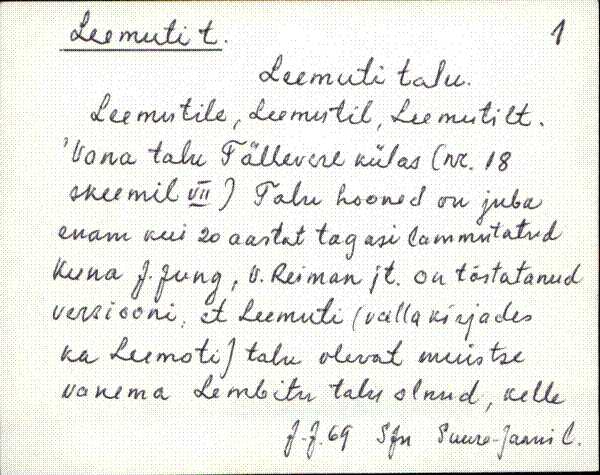 Leemuti t. 1
Leemuti talu.
Leemutile, Leemutil, Leemutilt.
Vana talu Tällevere külas (nr. 18
skeemil VII) Talu hooned on juba
enam kui 20 aastat tagasi lammutatud
Kuna J. Jung, V. Reiman jt. on tõstatanud
versiooni, et Leemuti (valla kirjades
ka Leemoti) talu olevat muistse
vanema Lembitu talu olnud, kelle
J.J. 69 Sjn Suure-Jaani l.